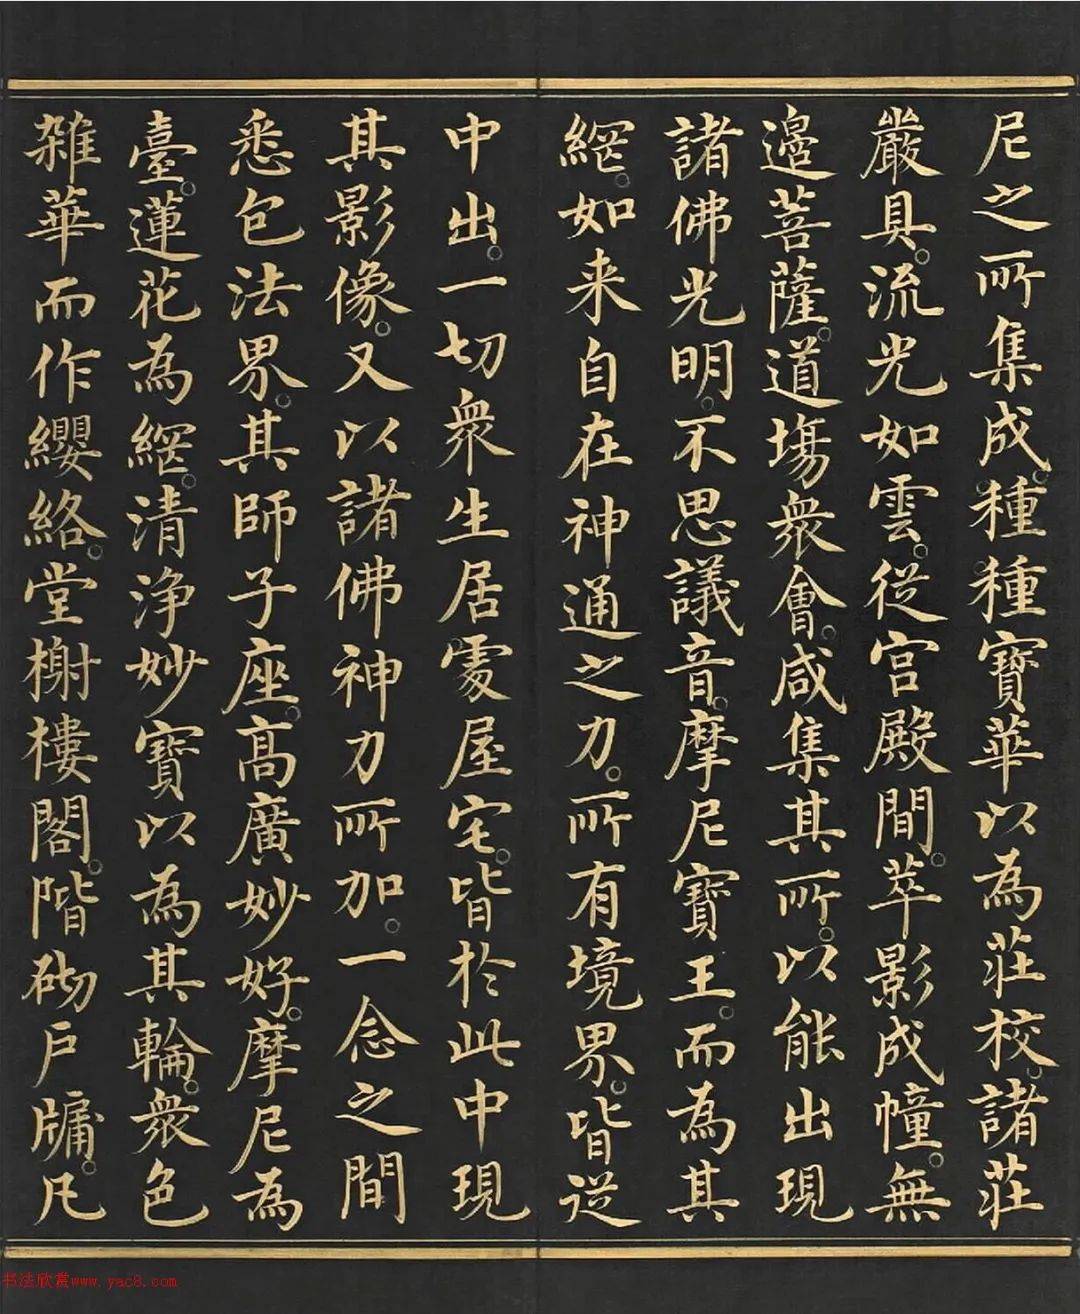 尼之所集成。種種寶華以為莊校。諸莊
嚴具。流光如雲。從宮殿間。萃影成幢。無
邊菩薩。道場衆會。咸集其所。以能出現
諸佛光明。不思議音。摩尼寶王。而為其
網。如来自在神通之力。所有境界。皆從
中出。一切衆生居處屋宅。皆於此中現
其影像。又以諸佛神力所加。一念之間
悉包法界。其師子座。高廣妙好。摩尼為
臺。蓮花為網。清淨妙寶以為其輪。衆色
雜華而作纓絡。堂榭樓閣。階砌戶牖。凡
书法欣赏www.yac8.com